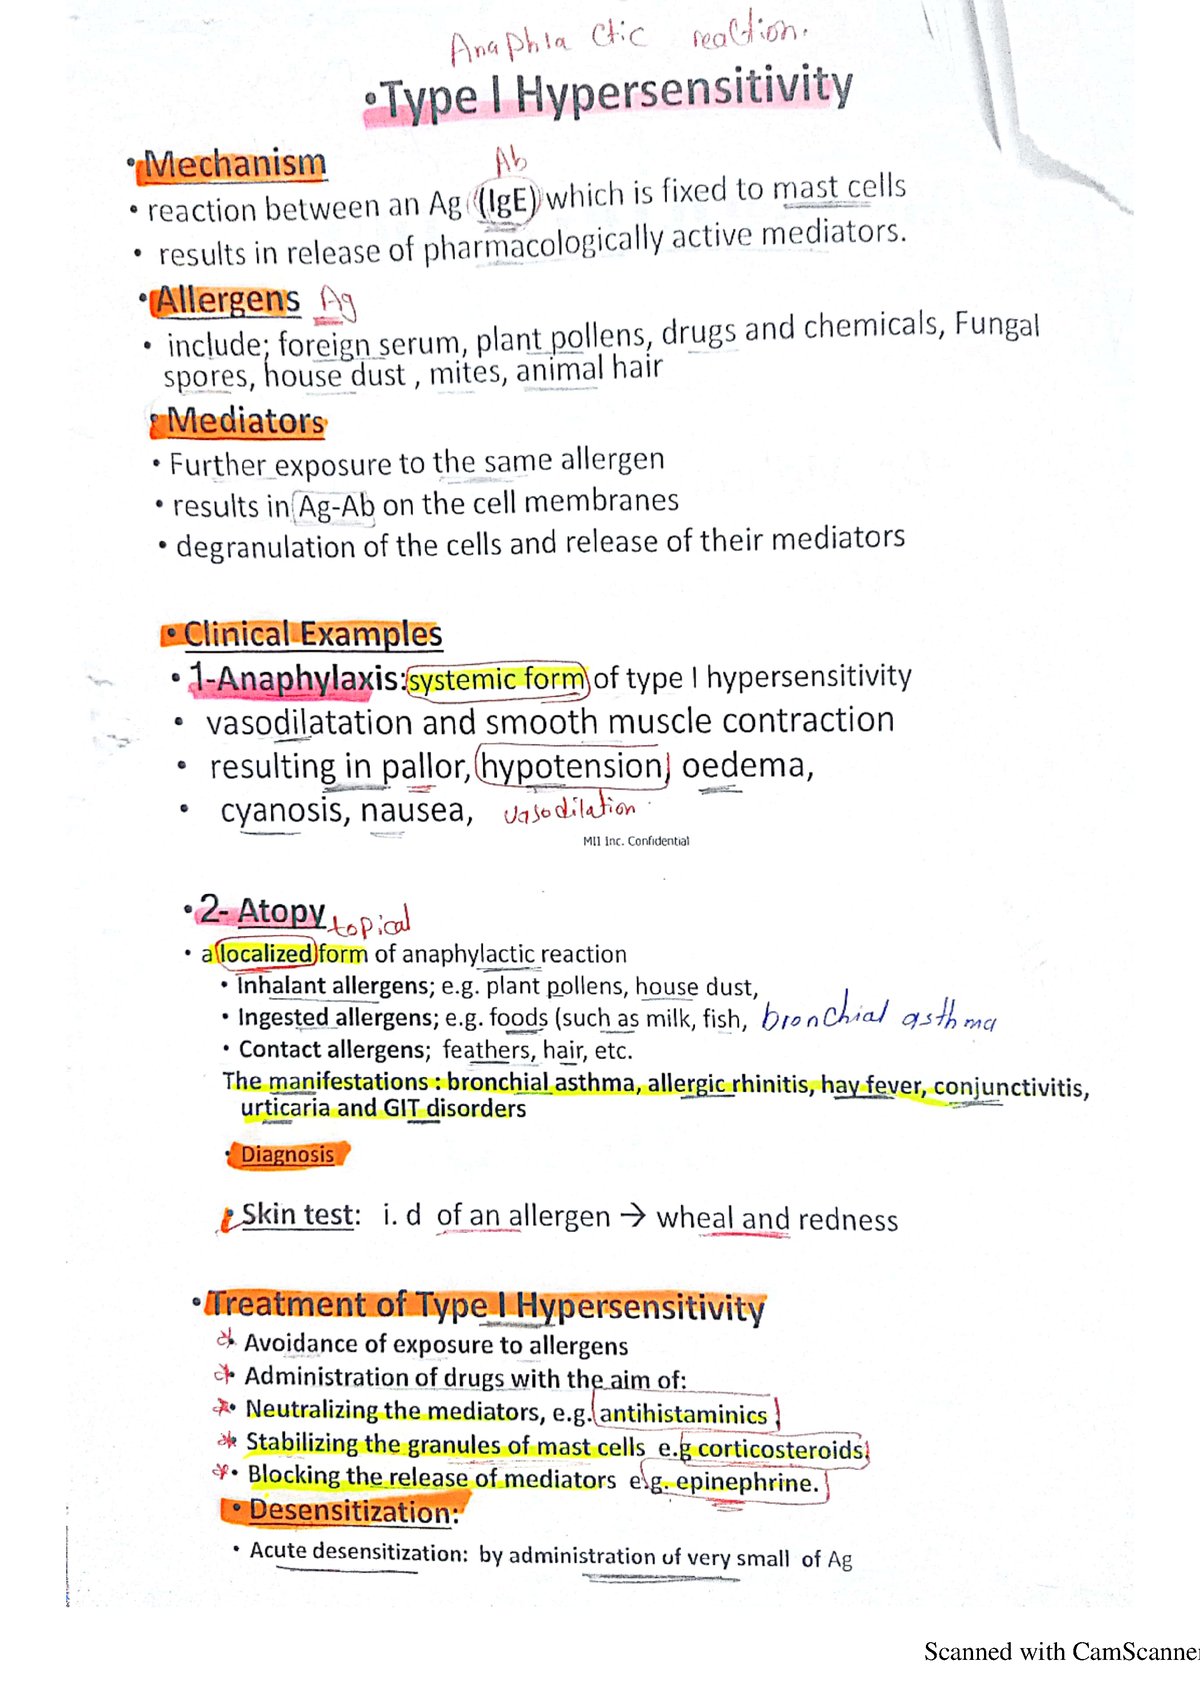 Anaphla ctic reaction.
•Type I Hypersensitivity
•Mechanism
Ab
• reaction between an Ag (IgE) which is fixed to mast cells
• results in release of pharmacologically active mediators.
•Allergens Ag
• include; foreign serum, plant pollens, drugs and chemicals, Fungal
spores, house dust , mites, animal hair
•Mediators
• Further exposure to the same allergen
• results in Ag-Ab on the cell membranes
• degranulation of the cells and release of their mediators
•Clinical Examples
• 1-Anaphylaxis:systemic form of type I hypersensitivity
• vasodilatation and smooth muscle contraction
• resulting in pallor, hypotension, oedema,
• cyanosis, nausea, vasodilation
MII Inc. Confidential
•2- Atopy topical
• a localized form of anaphylactic reaction
• Inhalant allergens; e.g. plant pollens, house dust,
• Ingested allergens; e.g. foods (such as milk, fish, bronchial asthma
• Contact allergens; feathers, hair, etc.
The manifestations : bronchial asthma, allergic rhinitis, hay fever, conjunctivitis,
urticaria and GIT disorders
• Diagnosis
• Skin test: i. d of an allergen → wheal and redness
•Treatment of Type I Hypersensitivity
• Avoidance of exposure to allergens
• Administration of drugs with the aim of:
• Neutralizing the mediators, e.g. antihistaminics
• Stabilizing the granules of mast cells e.g corticosteroids
• Blocking the release of mediators e.g. epinephrine.
• Desensitization:
• Acute desensitization: by administration of very small of Ag
Scanned with CamScanner